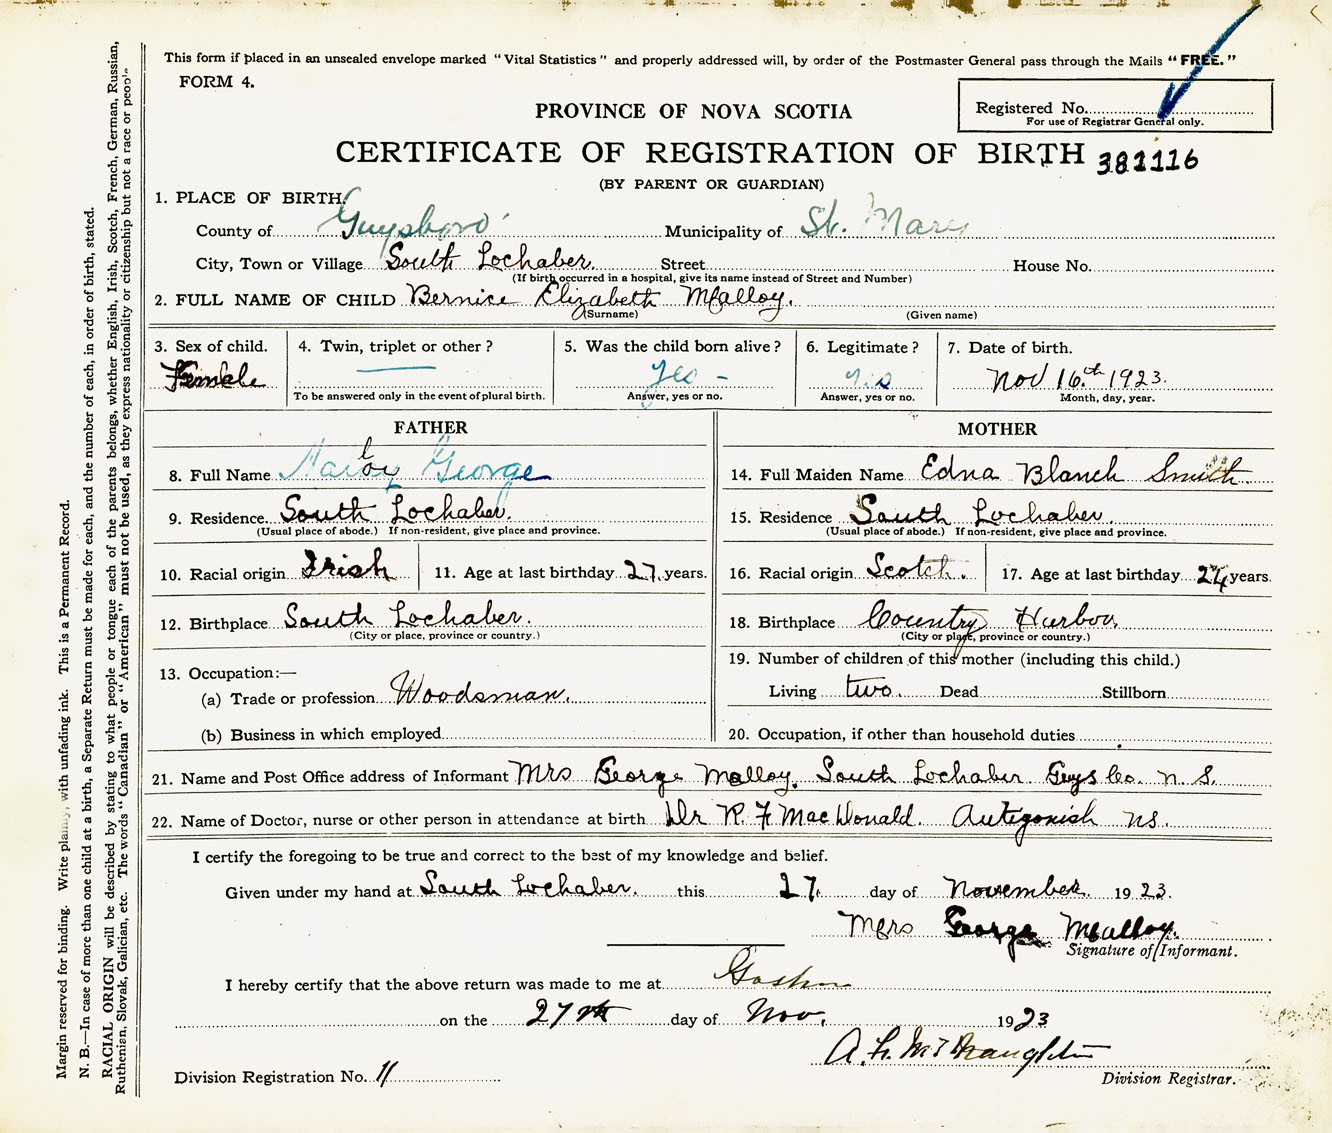 This form if placed in an unsealed envelope marked "Vital Statistics" and properly addressed will, by order of the Postmaster General pass through the Mails "FREE."
FORM 4.
PROVINCE OF NOVA SCOTIA
Registered No.
For use of Registrar General only.
CERTIFICATE OF REGISTRATION OF BIRTH 382116
(BY PARENT OR GUARDIAN)
1. PLACE OF BIRTH:
County of Guysboro' Municipality of St. Marys
City, Town or Village South Lochaber. Street House No.
(If birth occurred in a hospital, give its name instead of Street and Number)
2. FULL NAME OF CHILD Bernice Elizabeth Malloy.
(Surname) (Given name)
3. Sex of child. 4. Twin, triplet or other? 5. Was the child born alive? 6. Legitimate? 7. Date of birth.
Female yes - yes Nov 16th 1923.
To be answered only in the event of plural birth. Answer, yes or no. Answer, yes or no. Month, day, year.
FATHER MOTHER
8. Full Name Malloy George 14. Full Maiden Name Edna Blanch Smith
9. Residence South Lochaber. 15. Residence South Lochaber.
(Usual place of abode.) If non-resident, give place and province. (Usual place of abode.) If non-resident, give place and province.
10. Racial origin Irish 11. Age at last birthday 27 years. 16. Racial origin Scotch. 17. Age at last birthday 24 years.
12. Birthplace South Lochaber. 18. Birthplace Country Harbor.
(City or place, province or country.) (City or place, province or country.)
13. Occupation:— 19. Number of children of this mother (including this child.)
(a) Trade or profession Woodsman. Living two. Dead Stillborn
(b) Business in which employed 20. Occupation, if other than household duties
21. Name and Post Office address of Informant Mrs George Malloy. South Lochaber Guys Co. N. S.
22. Name of Doctor, nurse or other person in attendance at birth Dr R. F MacDonald. Antigonish NS.
I certify the foregoing to be true and correct to the best of my knowledge and belief.
Given under my hand at South Lochaber. this 27. day of November 1923.
Mrs George Malloy.
Signature of Informant.
I hereby certify that the above return was made to me at Goshen
on the 27th day of Nov. 1923
Division Registration No. 11 Division Registrar.
Margin reserved for binding. Write plainly, with unfading ink. This is a Permanent Record.
N. B.—In case of more than one child at a birth, a Separate Return must be made for each, and the number of each, in order of birth, stated.
RACIAL ORIGIN will be described by stating to what people or tongue each of the parents belongs, whether English, Irish, Scotch, French, German, Russian,
Ruthenian, Slovak, Galician, etc. The words "Canadian" or "American" must not be used, as they express nationality or citizenship but not a race or people